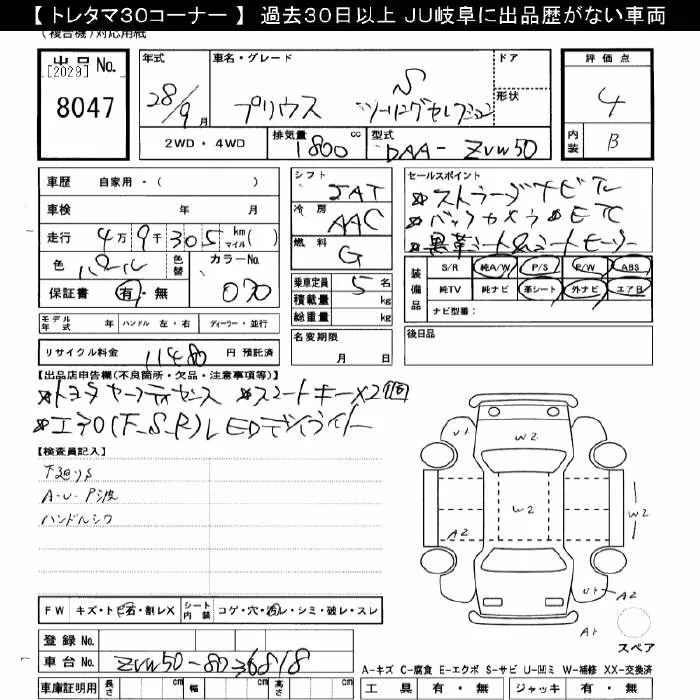 【 トレタマ30コーナー 】 過去30日以上 JU岐阜に出品歴がない車両
(複合機)対応用紙
出品 No.
[2029]
8047
年式
28/9 月
車名・グレード
プリウス S ツーリングセレクション
ドア
形状
評価点
4
内装
B
2WD・4WD
排気量
1800 cc
型式
DAA- ZVW50
車歴 自家用・( )
車検 年 月
走行 4万9千305 km マイル( )
色 パール 色替 カラーNo. 070
保証書 有・無
シフト
冷房
AAC
燃料
G
乗車定員 5名
積載量 kg
総重量 kg
セールスポイント
※バックカメラ※ETC
※黒革シート&シートヒーター
装備品
S/R 純A/W P/S P/W ABS
純TV 純ナビ 革シート 外ナビ エアB
ナビ型番:
モデル年式 年 ハンドル 左・右 ディーラー・並行
名変期限
月 日
後日品
リサイクル料金 11480 円 預託済
【出品店申告欄(不良箇所・欠品・注意事項等)】
※トヨタセーフティセンス ※スマートキー×2個
※エアロ(F_S_R)LEDデイライト
【検査員記入】
下廻りS
A-U-P波
ハンドルシワ
FW キズ・ト石・割レX シート内装 コゲ・穴・汚レ・シミ・破レ・スレ
登録 No.
車台 No. ZVW50-8036818
車庫証明用 長さ cm 幅 cm 高さ cm
U1
W2
W2
W2
A2
U1
A2
A1
スペア
A-キズ C-腐食 E-エクボ S-サビ U-凹ミ W-補修 XX-交換済
工具 有・無 ジャッキ 有・無